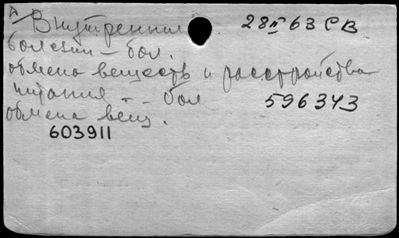 А
Внутренние 28 II 63 СВ
болезни – бол.
обмена веществ и расстройства
питания – бол 596343
обмена вещ.
603911